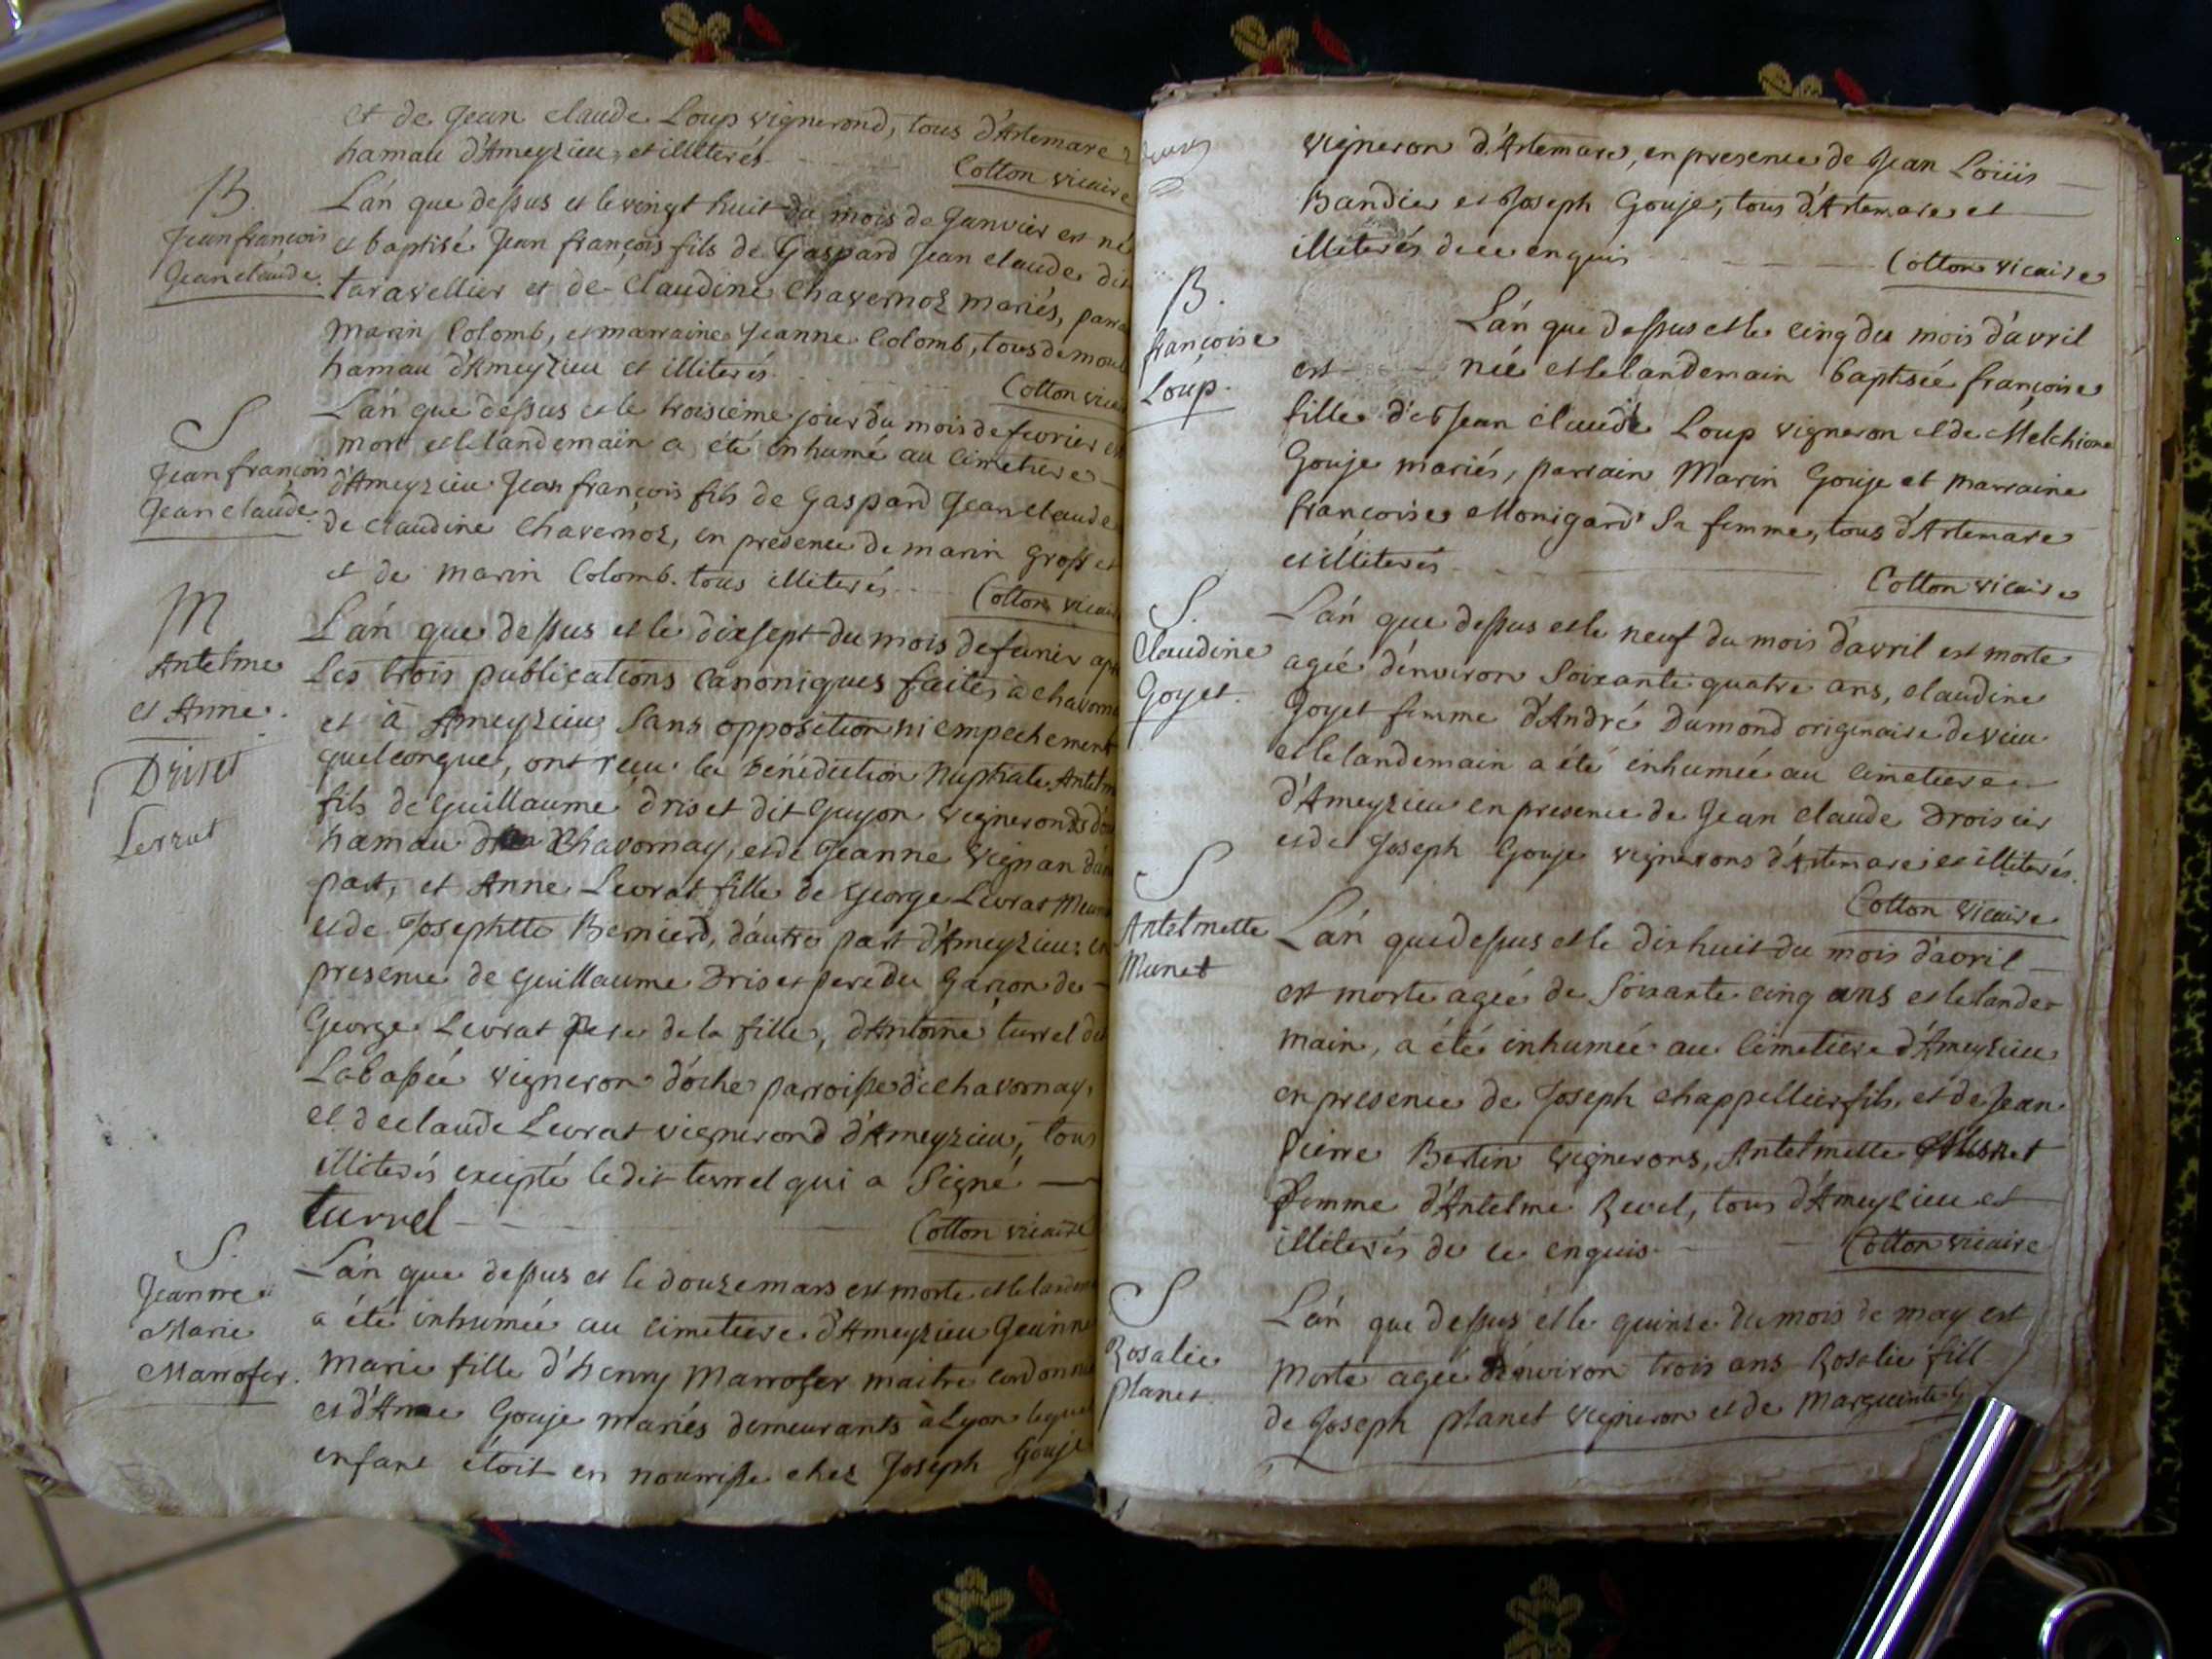 et de Jean claude Loup vignerond, tous d'Artemare
hamau d'Ameyzieu, et illiterés.
Cotton vicaire
B.
Jean françois
Jean claude.
L'an que dessus et le vingt huit du mois de Janvier est né
et baptisé Jean françois fils de Gaspard Jean claude dit
taravellier et de Claudine Chavernoz mariés,
Marin Colomb, et marraine Jeanne Colomb, tous
hamau d'Ameyzieu et illiterés.
Cotton
S
Jean françois
Jean claude.
L'an que dessus et le troisieme jour du mois de fevrier
mort et le landemain a été inhumé au cimetiere
d'Ameyzieu Jean françois fils de Gaspard Jean claude
de claudine Chavernoz, en presence de marin Gross et
et de marin Colomb. tous illiterés
Cotton
M
Antelme
et Anne.
Driset
Levrat
L'an que dessus et le dixsept du mois de fevrier
Les trois publications canoniques faites a
et à Ameyzieu sans opposition ni empechement
quelconque, ont reçu la bénédiction Nuptiale
fils de Guillaume driset dit Guyon vigneronds
hamau Chavornay, et de Jeanne Vignan
part, et Anne Levrat fille de George Levrat
et de Josephtte Bernierd, d'autre part d'Ameyzieu: en
presence de Guillaume Driset pere du Garçon de
George Levrat pere de la fille, d'Antoine turrel dit
Labassée vigneron d'oche parroisse de Chavornay,
et de claude Levrat vignerond d'Ameyzieu, tous
illiterés excepté le dit turrel qui a Signé
turrel
Cotton vicaire
S.
Jeanne
Marie
Marrofer.
L'an que dessus et le douze mars est morte et le
a été inhumée au cimetiere d'Ameyzieu Jeanne
Marie fille d'henry Marrofer maitre
et d'Anne Gouje mariés demeurants à Lyon
enfant étoit en nourrisse chez Joseph Gouje
vigneron d'Artemare, en presence de Jean Loüis
Bandier et Joseph Gouje, tous d'Artemare et
illiterés de ce enquis
Cotton vicaire
B.
françoise
Loup.
L'an que dessus et le cinq du mois d'avril
est née et le landemain baptisée françoise
fille de Jean claude Loup vigneron et de Melchione
Gouje mariés, parrain Marin Gouje et marraine
françoise Monigard Sa femme, tous d'Artemare
et illiterés
Cotton vicaire
S.
Claudine
Goyet.
L'an que dessus et le neuf du mois d'avril est morte
agée d'environ Soixante quatre ans, claudine
Goyet femme d'André Dumond originaire de vieu
et le landemain a été inhumée au cimetiere
d'Ameyzieu en presence de Jean claude Droisier
et de Joseph Gouje vignerons d'Artemare et illiterés.
Cotton vicaire
S
Antelmette
Munet
L'an que dessus et le dix huit du mois d'avril
est morte agée de Soixante cinq ans et le lande
main, a été inhumée au cimetiere d'Ameyzieu
en presence de Joseph chappellier fils, et de Jean
Pierre Bertin vignerons, Antelmette Munet
femme d'Antelme Revel, tous d'Ameyzieu et
illiterés de ce enquis.
Cotton vicaire
S
Rosalie
planet.
L'an que dessus et le quinze du mois de may est
Morte agée d'environ trois ans Rosalie fill
de Joseph planet vigneron et de